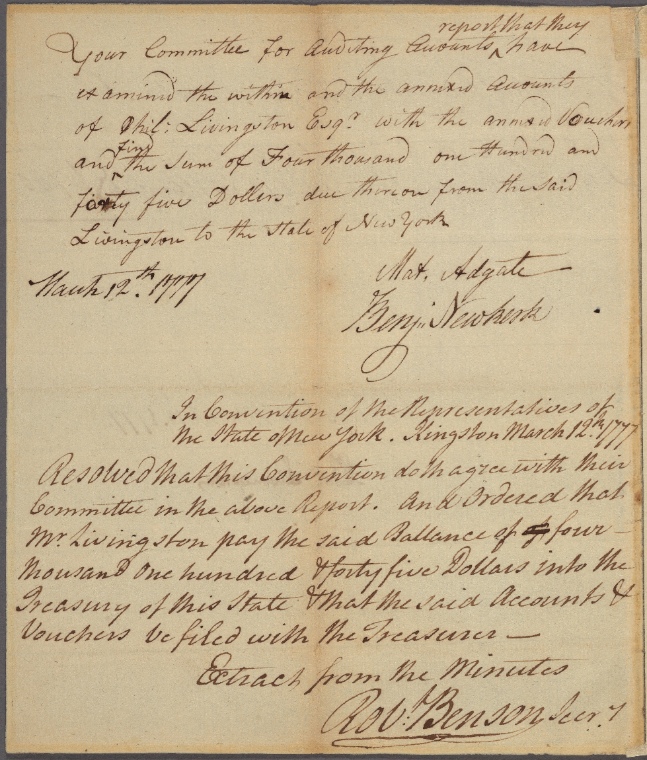 report that they
Your Committee for Auditing Accounts ^ have
examined the within and the annexed Accounts
of Phil: Livingston Esqr with the annexed Vouchers
find
and ^ the Sum of Four thousand one Hundred and
forty five Dollars due thereon from the said
Livingston to the State of New York
March 12th. 1777
Mat. Adgate
Benj. Newkerk
In Convention of the Representatives of
the State of New York. Kingston March 12th. 1777
Resolved that this Convention doth agree with their
Committee in the above Report. And Ordered that
Mr. Livingston pay the said Ballance of four
thousand one hundred & forty five Dollars into the
Treasury of this State & that the said Accounts &
Vouchers be filed with the Treasurer —
Extract from the Minutes
Robt. Benson Secry